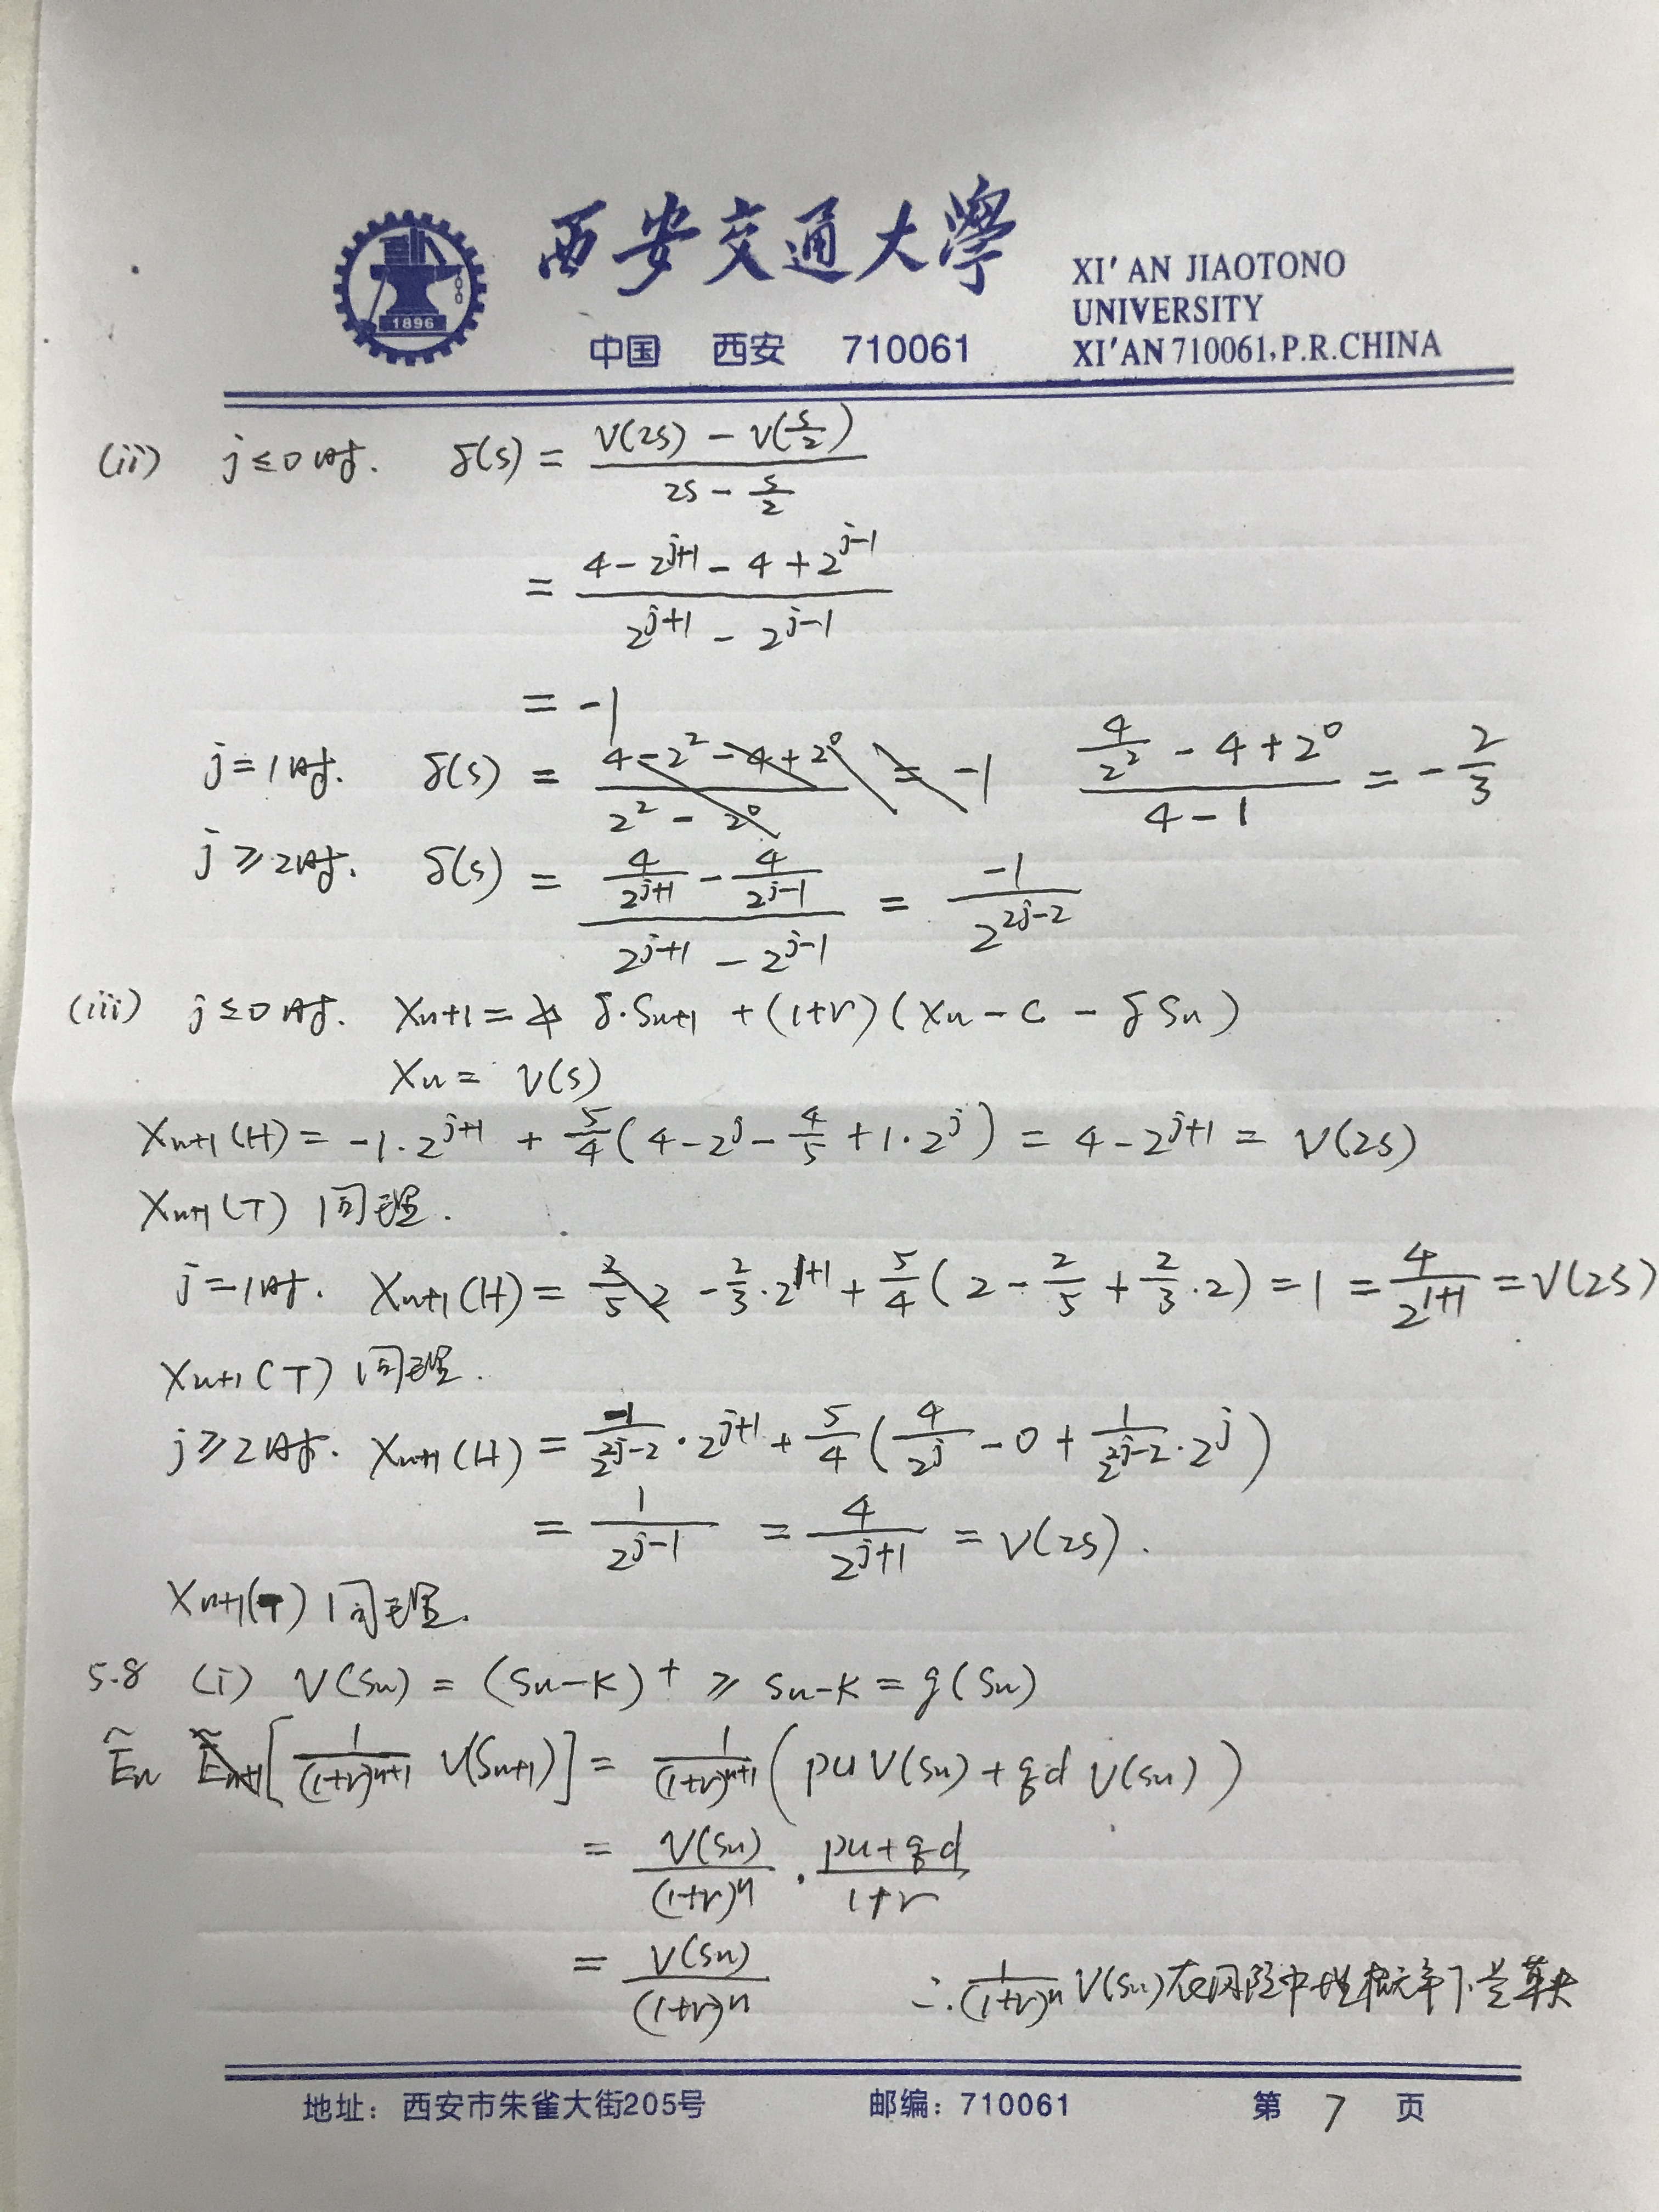 西安交通大學
XI'AN JIAOTONO
UNIVERSITY
XI'AN 710061, P.R.CHINA
中国 西安 710061
1896
(ii) j≤0时. δ(s) = (V(2s) - V(s/2)) / (2s - s/2)
= (4 - 2^{j+1} - 4 + 2^{j-1}) / (2^{j+1} - 2^{j-1})
= -1
j=1时. δ(s) = (4/2^2 - 4 + 2^0) / (4-1) = -2/3
j≥2时. δ(s) = (4/2^{j+1} - 4/2^{j-1}) / (2^{j+1} - 2^{j-1}) = -1/2^{2j-2}
(iii) j≤0时. X_{n+1} = δ·S_{n+1} + (1+r)(X_n - C - δS_n)
X_n = V(s)
X_{n+1}(H) = -1·2^{j+1} + 5/4(4 - 2^j - 4/5 + 1·2^j) = 4 - 2^{j+1} = V(2s)
X_{n+1}(T) 同理.
j=1时. X_{n+1}(H) = -2/3·2^{1+1} + 5/4(2 - 2/5 + 2/3·2) = 1 = 4/2^{1+1} = V(2s)
X_{n+1}(T) 同理.
j≥2时. X_{n+1}(H) = -1/2^{2j-2}·2^{j+1} + 5/4(4/2^j - 0 + 1/2^{2j-2}·2^j)
= 1/2^{j-1} = 4/2^{j+1} = V(2s).
X_{n+1}(T) 同理.
5.8 (i) V(S_n) = (S_n-K)^+ ≥ S_n-K = g(S_n)
Ẽ_n[1/(1+r)^{n+1} V(S_{n+1})] = 1/(1+r)^{n+1} (pu V(S_n) + qd V(S_n))
= V(S_n)/(1+r)^n · (pu+qd)/(1+r)
= V(S_n)/(1+r)^n ∴ 1/(1+r)^n V(S_n)在风险中性概率下是鞅
地址：西安市朱雀大街205号 邮编：710061 第 7 页